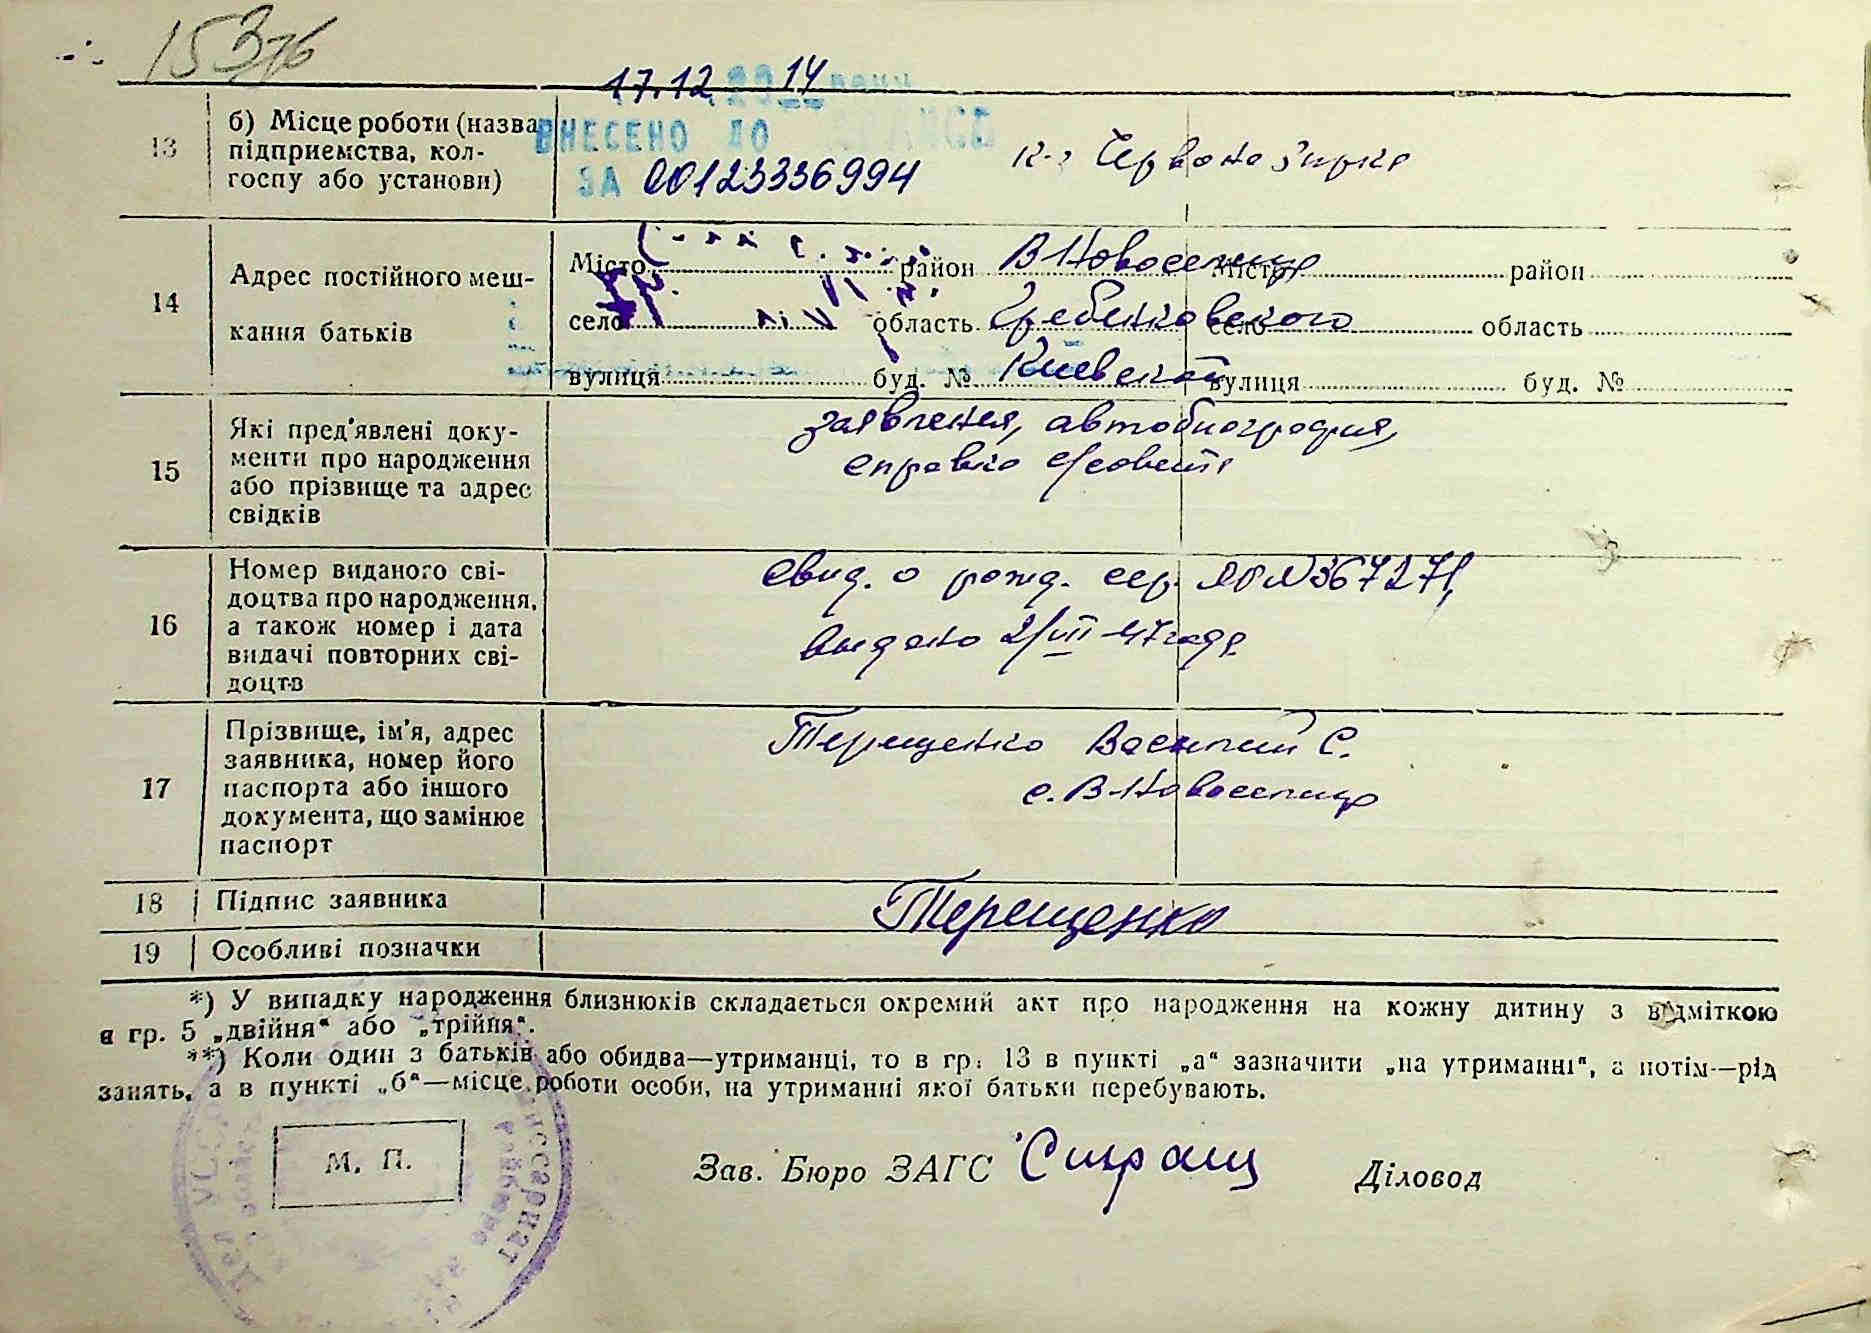 153 76
17.12.2014 року
ВНЕСЕНО ДО
ЗА 00123336994
13 б) Місце роботи (назва
підприємства, кол-
госпу або установи)
к-з Червона зірка
14 Адрес постійного меш-
кання батьків
Місто район В Новоселица Місто район
село область Гребенковского село область
вулиця буд. № Киевской вулиця буд. №
15 Які пред'явлені доку-
менти про народження
або прізвище та адрес
свідків
заявления, автобиография,
справка с/совета
16 Номер виданого сві-
доцтва про народження,
а також номер і дата
видачі повторних сві-
доцтв
Свид. о рожд. сер. N 367271,
выдано 2/VII-47 года
17 Прізвище, ім'я, адрес
заявника, номер його
паспорта або іншого
документа, що замінює
паспорт
Терещенко Василий С.
с. В-Новоселица
18 Підпис заявника Терещенко
19 Особливі позначки
*) У випадку народження близнюків складається окремий акт про народження на кожну дитину з відміткою
в гр. 5 „двійня“ або „трійня“.
**) Коли один з батьків або обидва—утриманці, то в гр. 13 в пункті „а“ зазначити „на утриманні“, а потім—рід
занять, а в пункті „б“—місце роботи особи, на утриманні якої батьки перебувають.
М. П.
Зав. Бюро ЗАГС Діловод